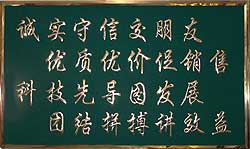 诚实守信交朋友
优质优价促销售
科技先导图发展
团结拼搏讲效益